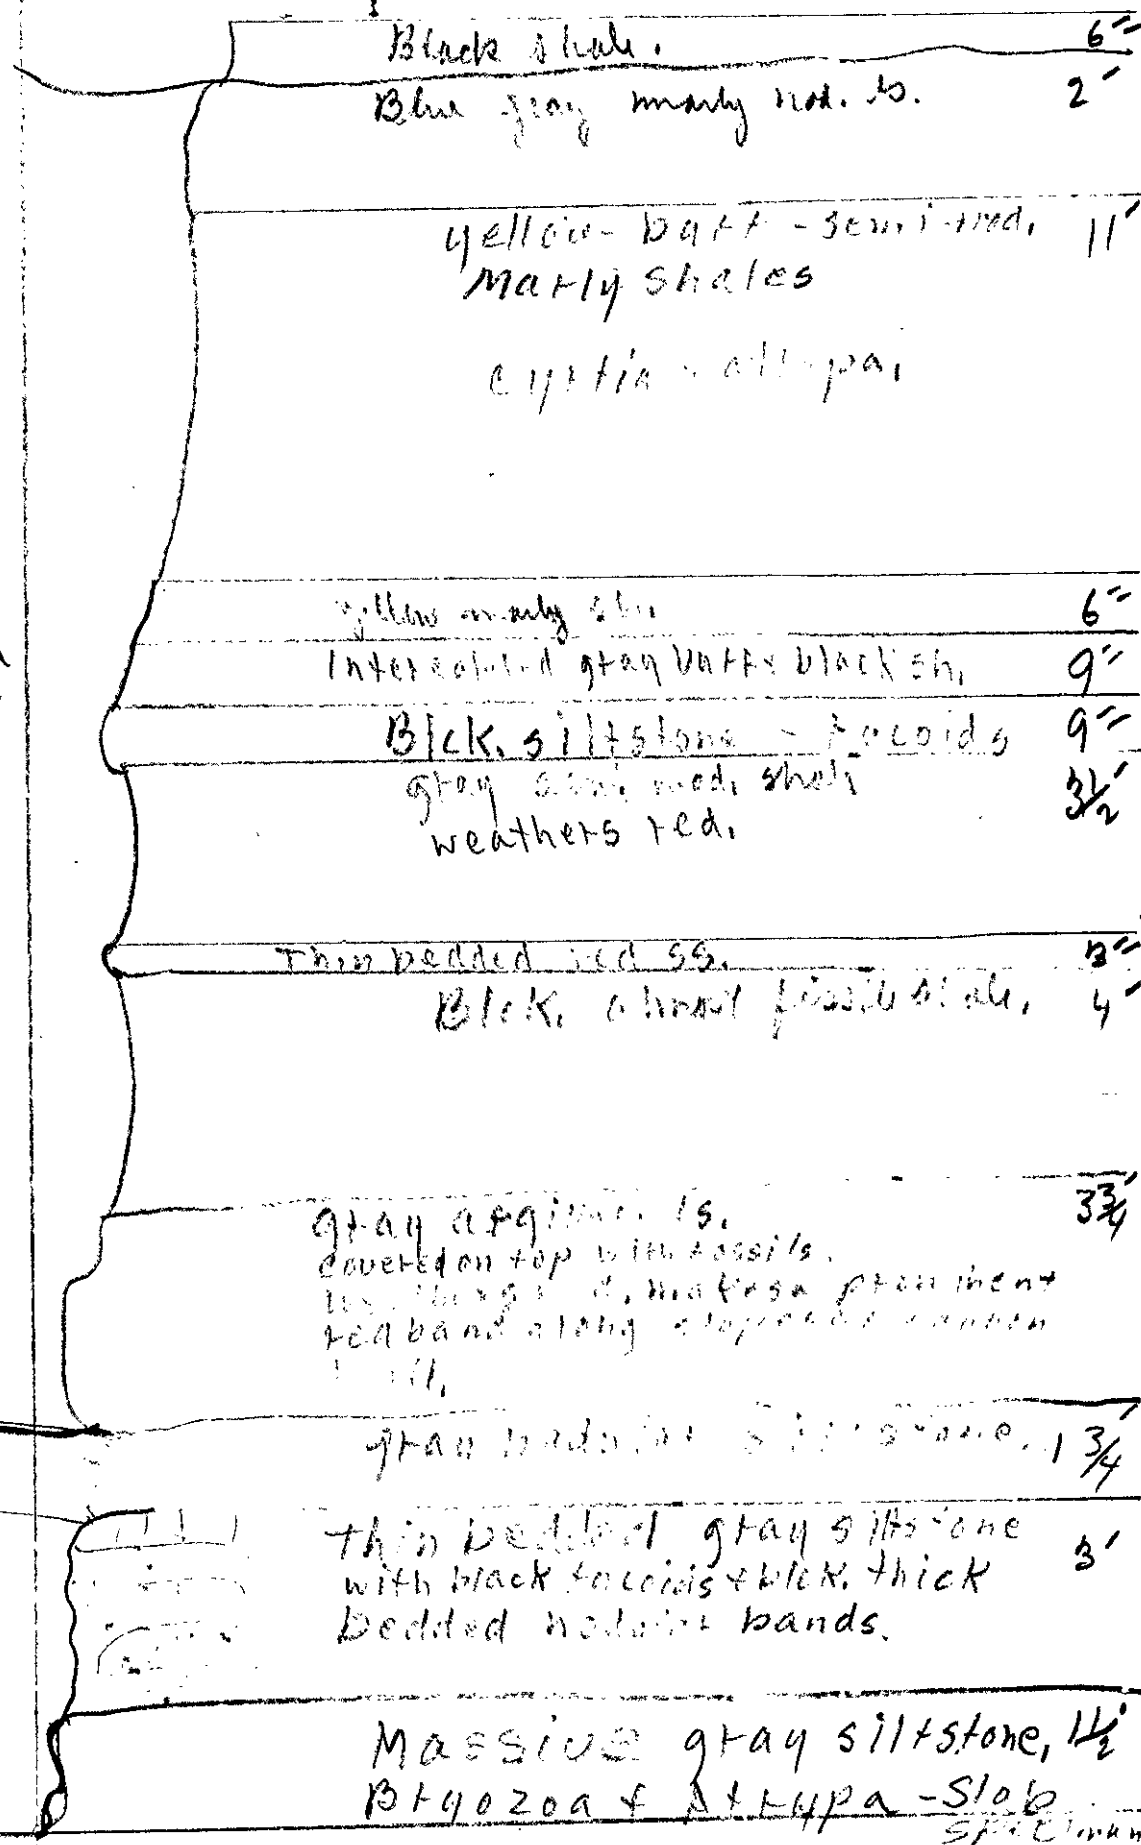 Black shale. 6"
Blue gray marly nod. ls. 2'
yellow-buff-semi-nod. 11'
Marly shales
cyrtia - atrypa.
yellow marly sh. 6"
Intercalated gray buff & black sh. 9"
Blck. siltstone - fucoids 9"
gray semi nod. shale 3 1/2'
weathers red.
Thin bedded red ss. 3"
Blck. almost fissile shale. 4'
gray argill. ls. 3 3/4'
covered on top with fossils.
makes a prominent
red band along canyon
wall.
gray nodular siltstone. 1 3/4'
thin bedded gray siltstone 3'
with black fucoids & blck. thick
bedded nodular bands.
Massive gray siltstone, 1 1/2'
Bryozoa & Atrypa - Slab
specimen